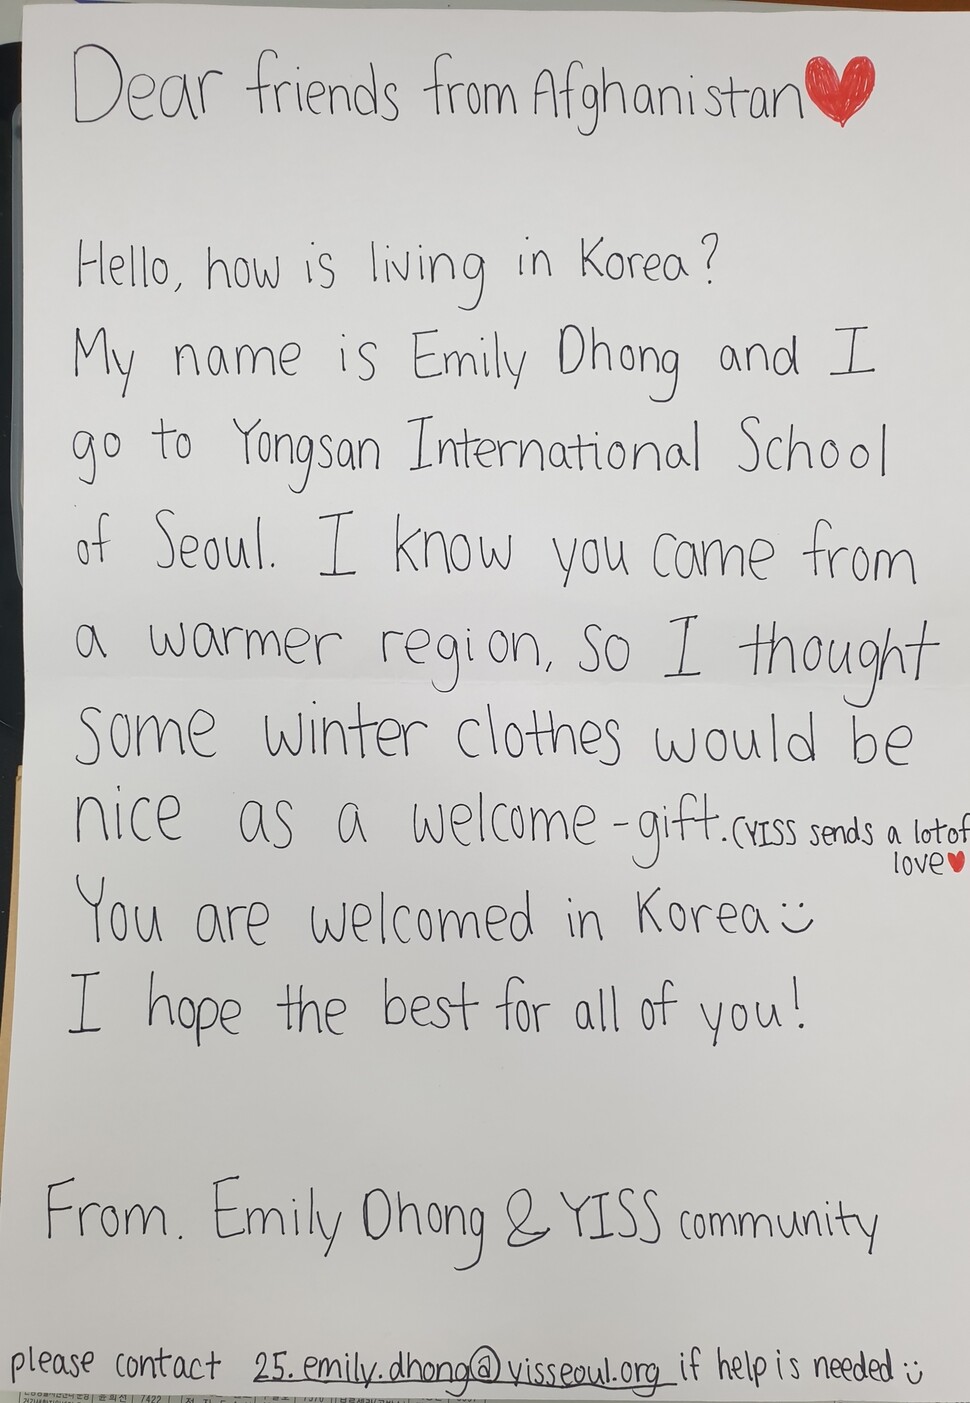 Dear friends from Afghanistan
Hello, how is living in Korea?
My name is Emily Dhong and I
go to Yongsan International School
of Seoul. I know you came from
a warmer region, so I thought
some winter clothes would be
nice as a welcome-gift. (YISS sends a lot of
love
You are welcomed in Korea
I hope the best for all of you!
From. Emily Dhong & YISS community
please contact 25.emily.dhong@yisseoul.org if help is needed
7422